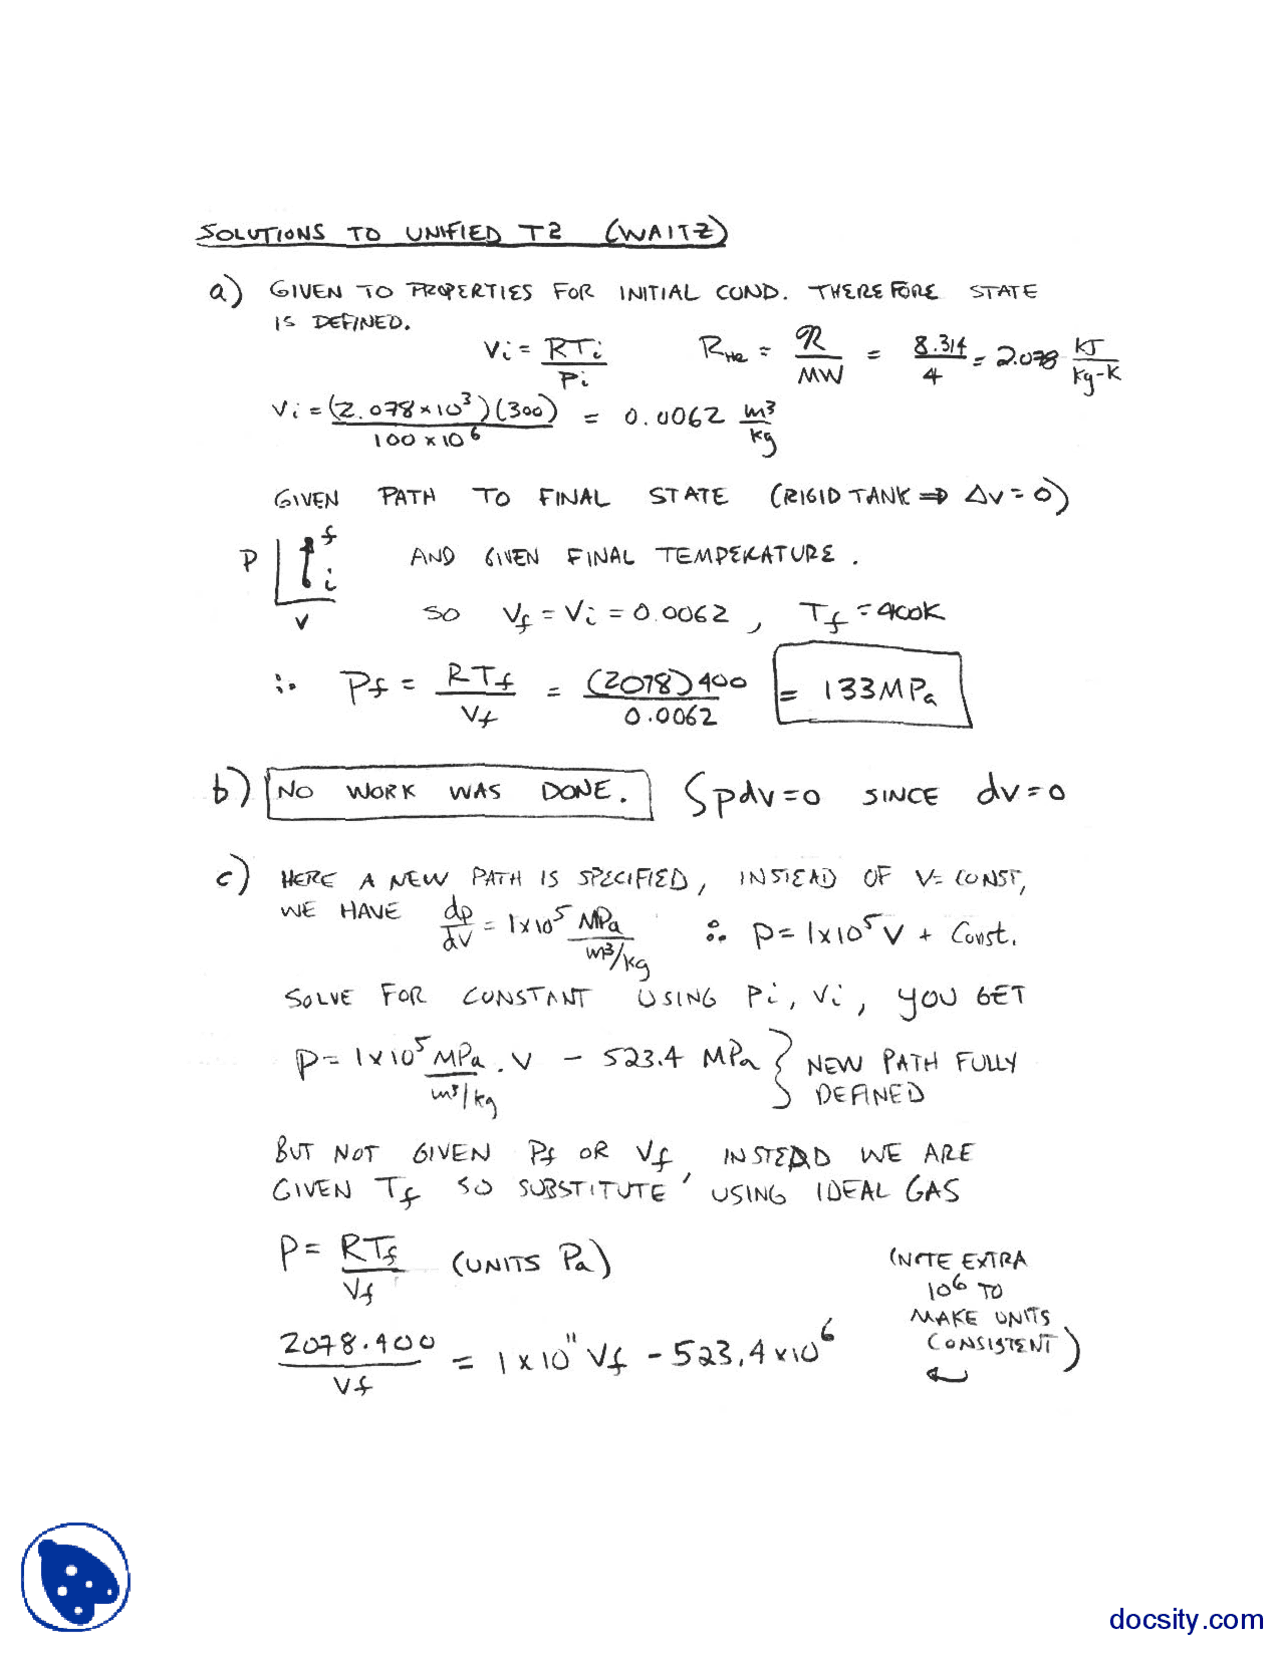 SOLUTIONS TO UNIFIED T2 (WAITZ)
a) GIVEN TO PROPERTIES FOR INITIAL COND. THEREFORE STATE
IS DEFINED.
Vi = RTi / Pi    R_He = ℛ / MW = 8.314 / 4 = 2.078 KJ / Kg-K
Vi = (2.078 x 10³)(300) / 100 x 10⁶ = 0.0062 m³ / kg
GIVEN PATH TO FINAL STATE (RIGID TANK ⇒ ΔV = 0)
P f i V AND GIVEN FINAL TEMPERATURE.
SO Vf = Vi = 0.0062, Tf = 400K
∴ Pf = RTf / Vf = (2078)400 / 0.0062 = 133MPa
b) NO WORK WAS DONE. ∫pdv=0 SINCE dv=0
c) HERE A NEW PATH IS SPECIFIED, INSTEAD OF V= CONST,
WE HAVE dp / dv = 1x10⁵ MPa / m³/kg ∴ p = 1x10⁵ V + Const.
SOLVE FOR CONSTANT USING Pi, Vi, YOU GET
p = 1x10⁵ MPa / m³/kg . V - 523.4 MPa } NEW PATH FULLY
DEFINED
BUT NOT GIVEN Pf OR Vf, INSTEAD WE ARE
GIVEN Tf SO SUBSTITUTE USING IDEAL GAS
P = RTf / Vf (UNITS Pa)
(NOTE EXTRA
10⁶ TO
MAKE UNITS
CONSISTENT)
2078.400 / Vf = 1 x 10¹¹ Vf - 523.4 x10⁶
docsity.com